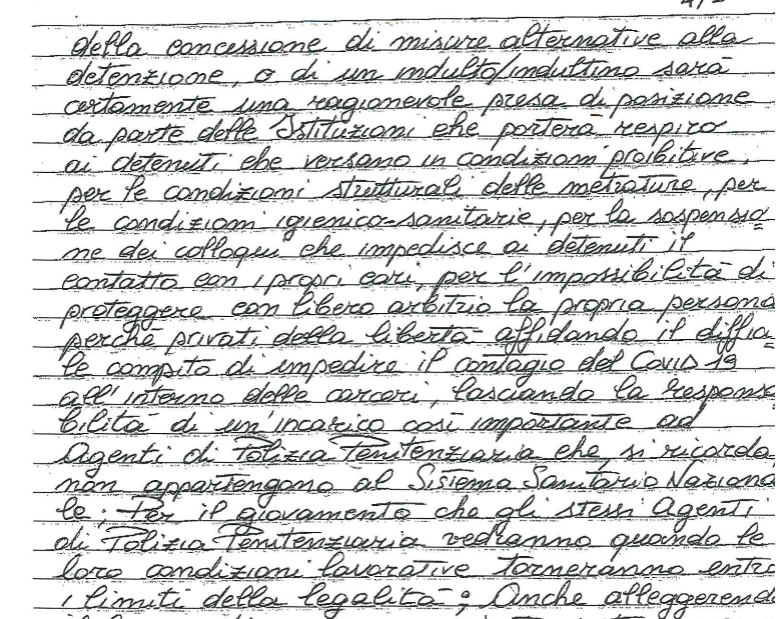 della concessione di misure alternative alla
detenzione, o di un indulto/induttino sarà
certamente una ragionevole presa di posizione
da parte delle Istituzioni che porterà respiro
ai detenuti che versano in condizioni proibitive,
per le condizioni strutturali delle metrature, per
le condizioni igienico-sanitarie, per la sospensio
ne dei colloqui che impedisce ai detenuti il
contatto con i propri cari, per l'impossibilità di
proteggere con libero arbitrio la propria persona
perché privati della libertà affidando il diffici
le compito di impedire il contagio del Covid 19
all'interno delle carceri, lasciando la responsa
bilità di un'incarico così importante ad
Agenti di Polizia Penitenziaria che, si ricorda
non appartengono al Sistema Sanitario Naziona
le; Per il giovamento che gli stessi Agenti
di Polizia Penitenziaria vedranno quando le
loro condizioni lavorative torneranno entro
i limiti della legalità; Anche alleggerendo